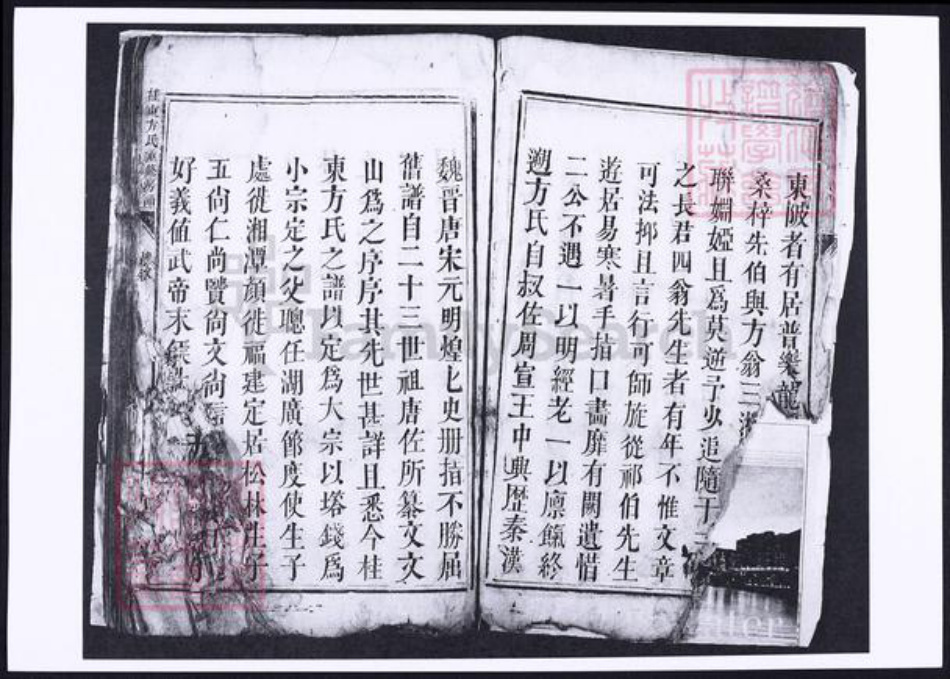 東陂者有居普樂龍
桑梓先伯與方翁三湘
聯婣婭且爲莫逆予少追隨于
之長君四翁先生者有年不惟文章
可法抑且言行可師旋從祁伯先生
遊居易寒暑手指口畵靡有闕遺惜
二公不遇一以明經老一以廪餼終
遡方氏自叔佐周宣王中興歷秦漢
魏晉唐宋元明煌七史册指不勝屈
舊譜自二十三世祖唐佐所纂文文
山爲之序序其先世甚詳且悉今桂
東方氏之譜以定爲大宗以塔錢爲
小宗定之父聰任湖廣節度使生子
處徙湘潭顏徙福建定居松林生子
五尙仁尙賢尙文尙信
好義值武帝末
桂東方氏
FamilySearch